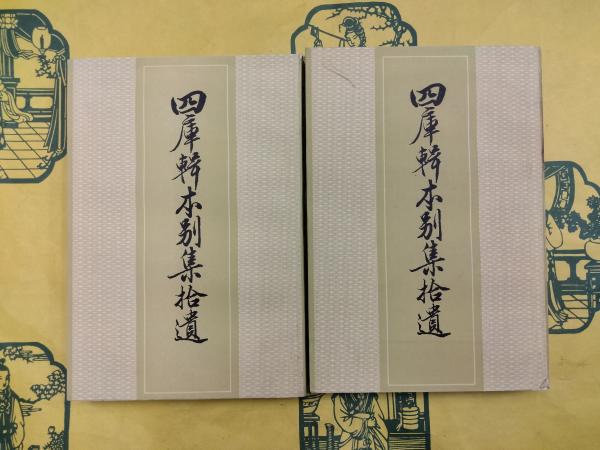 四庫輯本别集拾遺
四庫輯本别集拾遺